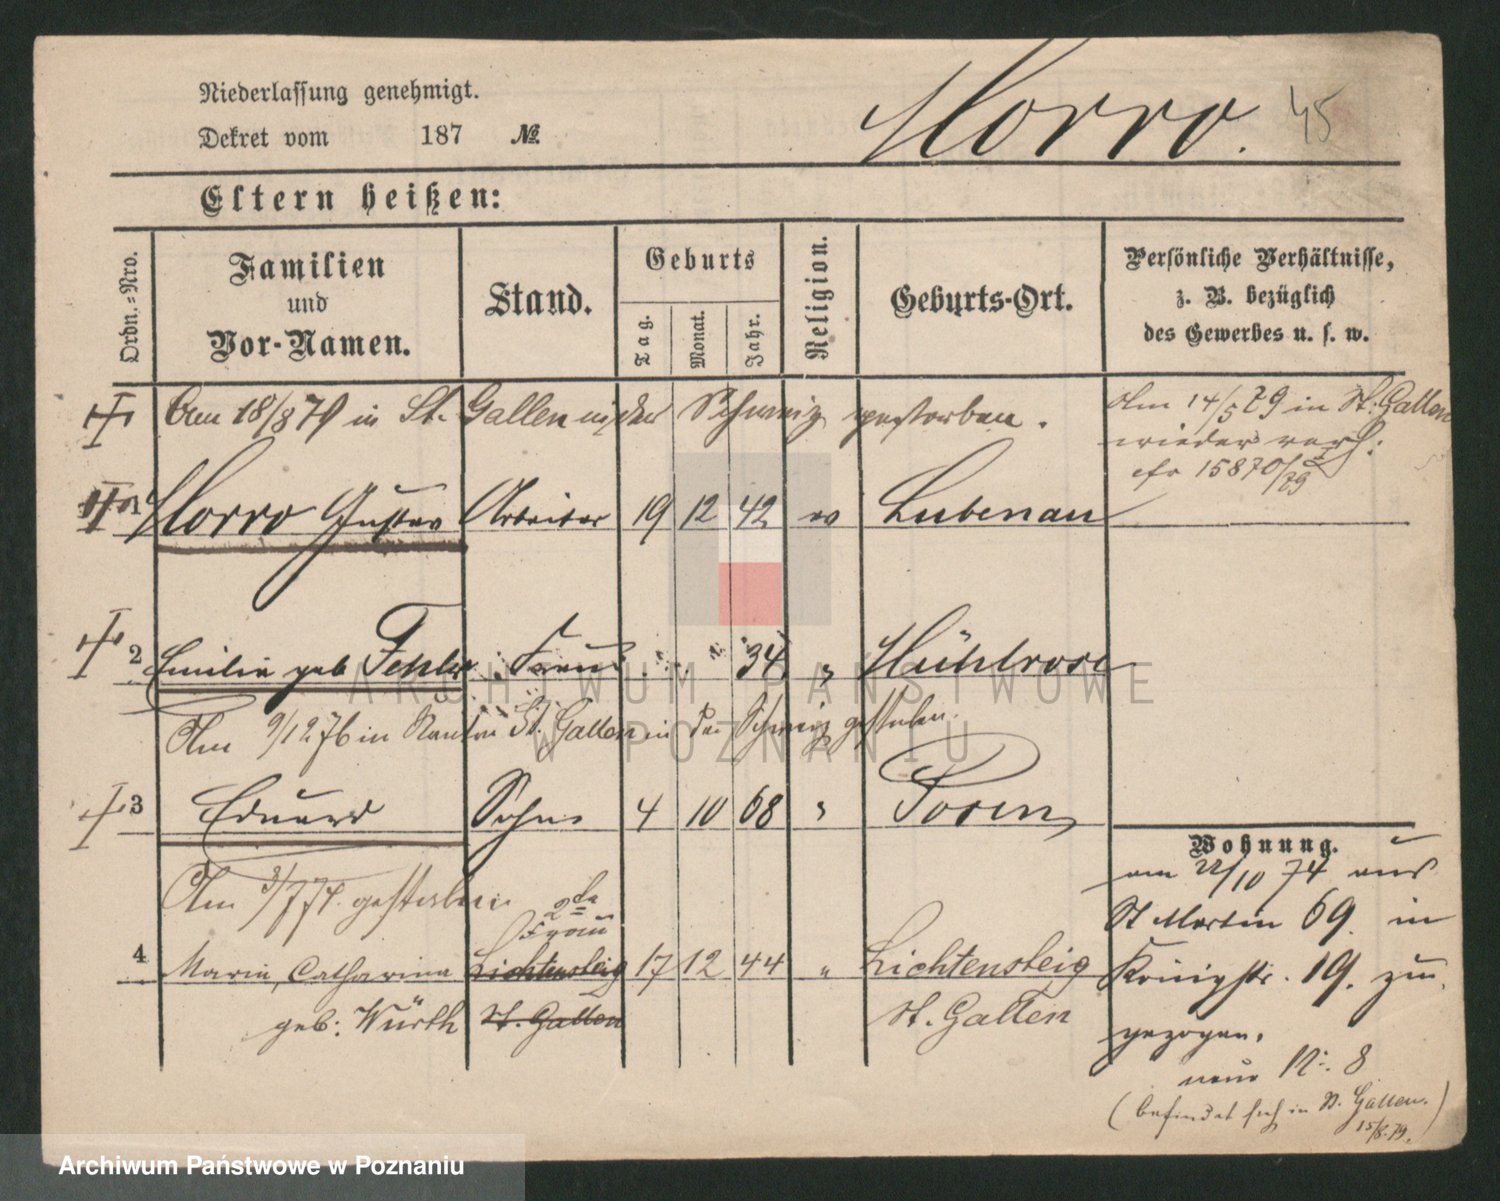 Niederlassung genehmigt.
Dekret vom 187 №.
Horro. 45
Eltern heißen:
Ordn.-Nro.
Familien und Vor-Namen.
Stand.
Geburts
Tag. Monat. Jahr.
Religion.
Geburts-Ort.
Persönliche Verhältnisse,
z. B. bezüglich
des Gewerbes u. s. w.
Am 18/8 79 in St. Gallen in der Schweiz gestorben.
Am 14/5 79 in St. Gallen
wieder verh:
cfr 15870/79
1 Horro Gustav Arbeiter 19 12 42 ev Lubenau
2 Emilie geb Fehler Frau 34 " Mühlrose
Am 9/12 76 in Kanton St. Gallen in der Schweiz gestorben.
3 Eduard Sohn 4 10 68 " Posen
Am 3/7 74. gestorben
2te
Frau
4 Maria, Catharina Lichtensteig 17 12 44 " Lichtensteig
geb: Würth St. Gallen St. Gallen
Wohnung.
am 22/10 74 aus
St Martin 69. in
Königstr. 19. zu
gezogen.
neue N: 8
(befindet sich in St. Gallen.)
15/8.79.
ARCHIWUM PAŃSTWOWE
W POZNANIU
Archiwum Państwowe w Poznaniu